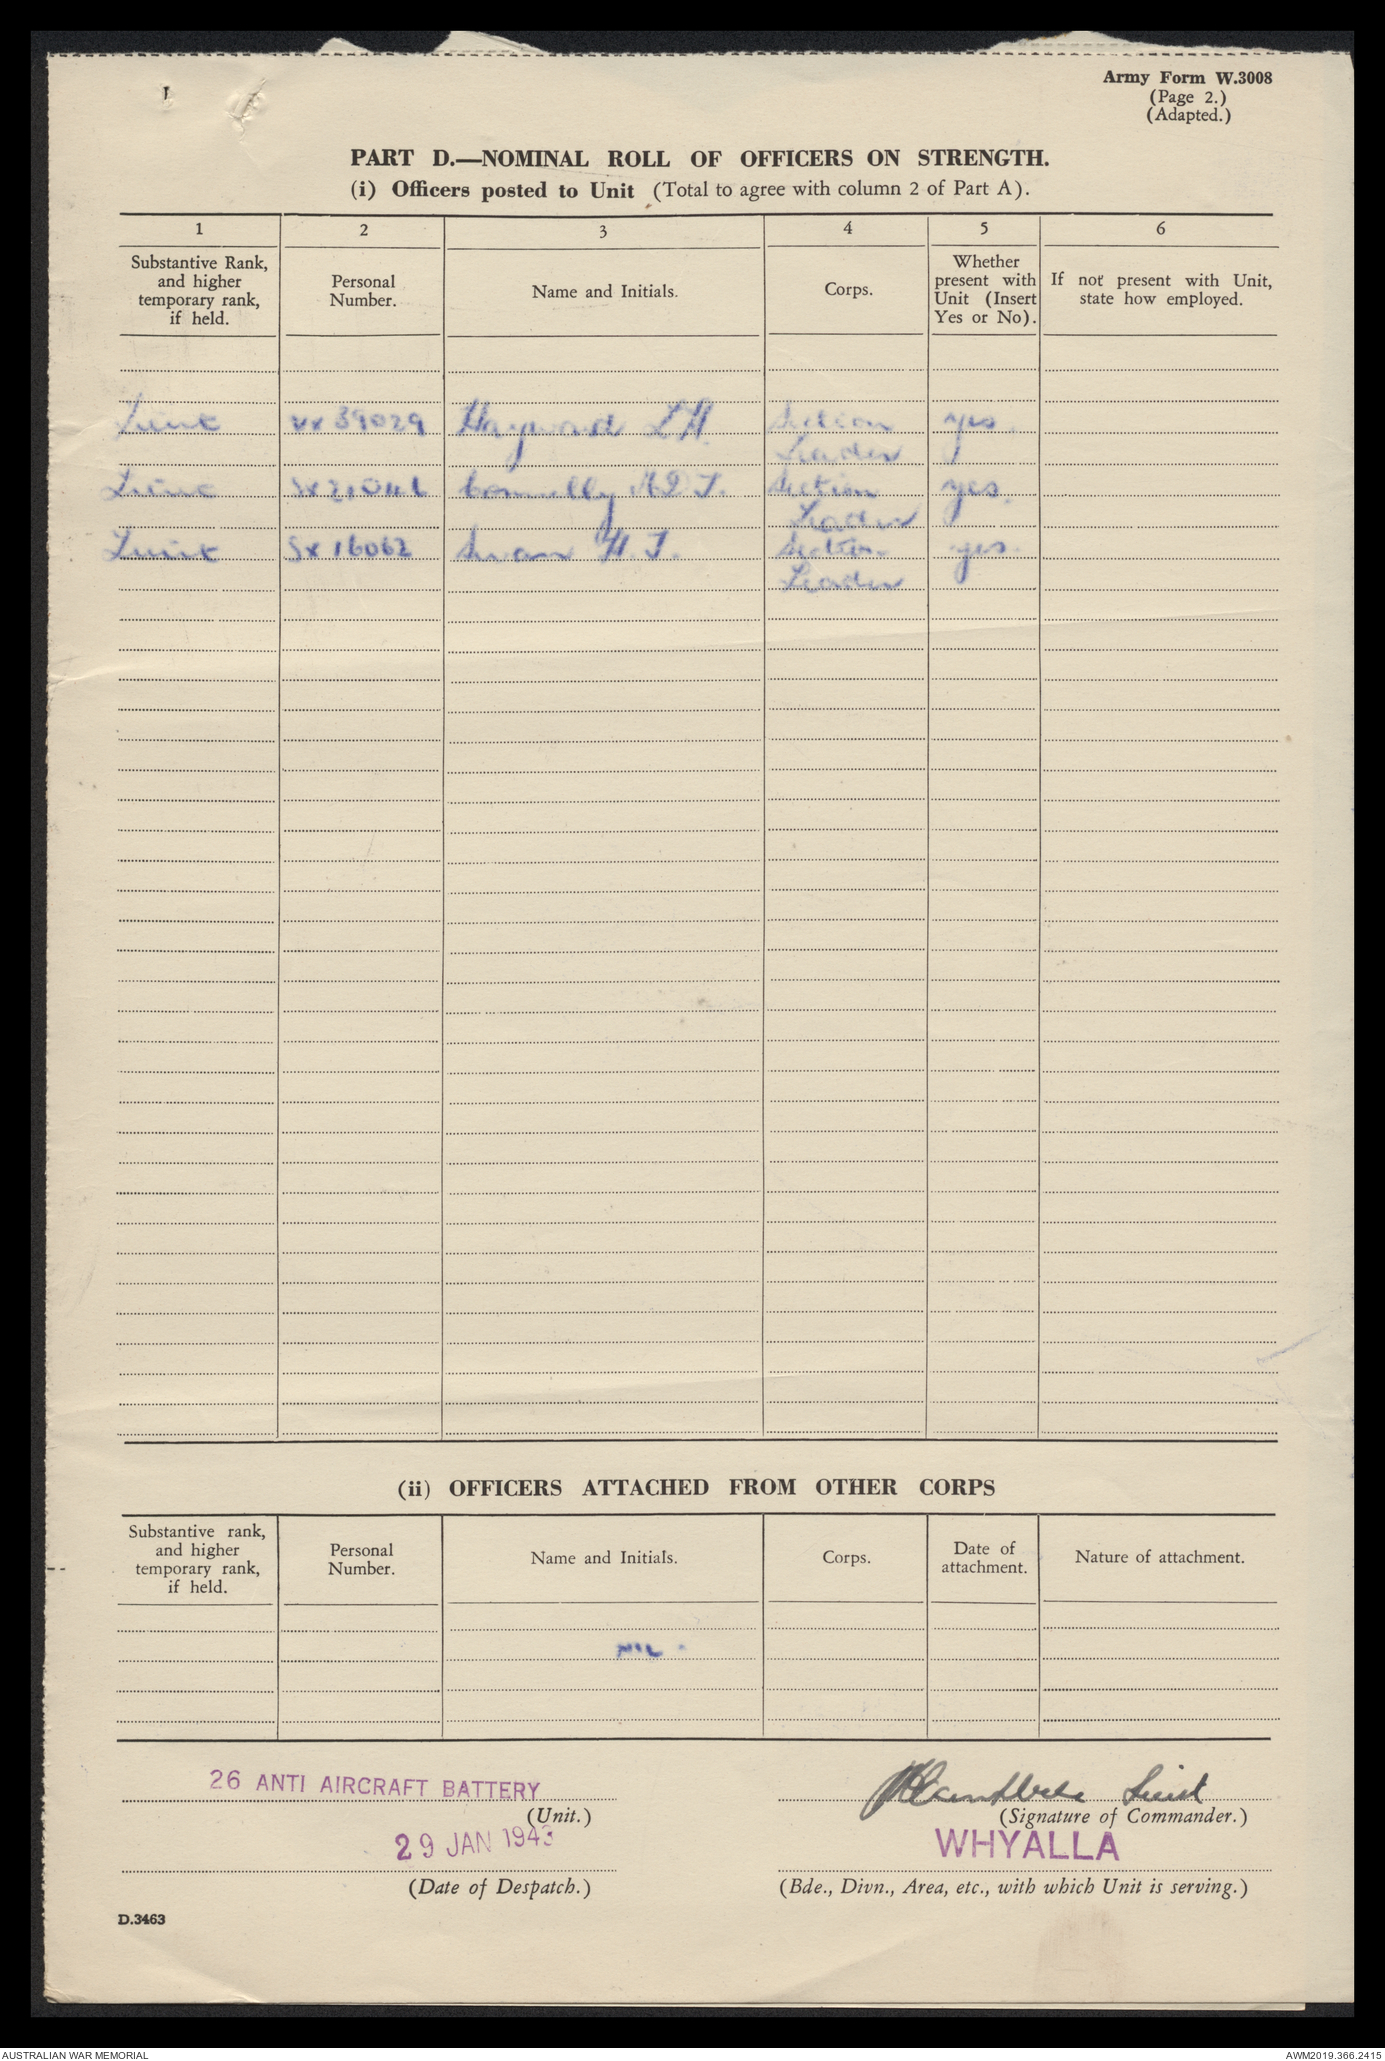 Army Form W.3008
(Page 2.)
(Adapted.)
PART D.—NOMINAL ROLL OF OFFICERS ON STRENGTH.
(i) Officers posted to Unit (Total to agree with column 2 of Part A).
1 2 3 4 5 6
Substantive Rank, and higher temporary rank, if held. Personal Number. Name and Initials. Corps. Whether present with Unit (Insert Yes or No). If not present with Unit, state how employed.
Lieut VX 39029 Hayward L.A. Section yes.
Leader
Lieut Connelly Section yes.
Leader
Lieut SX 16062 Swan H. J. Section yes.
Leader
(ii) OFFICERS ATTACHED FROM OTHER CORPS
Substantive rank, and higher temporary rank, if held. Personal Number. Name and Initials. Corps. Date of attachment. Nature of attachment.
NIL.
26 ANTI AIRCRAFT BATTERY
Lieut
(Unit.)
(Signature of Commander.)
29 JAN 1943
WHYALLA
(Date of Despatch.)
(Bde., Divn., Area, etc., with which Unit is serving.)
D.3463
AUSTRALIAN WAR MEMORIAL
AWM2019.366.2415